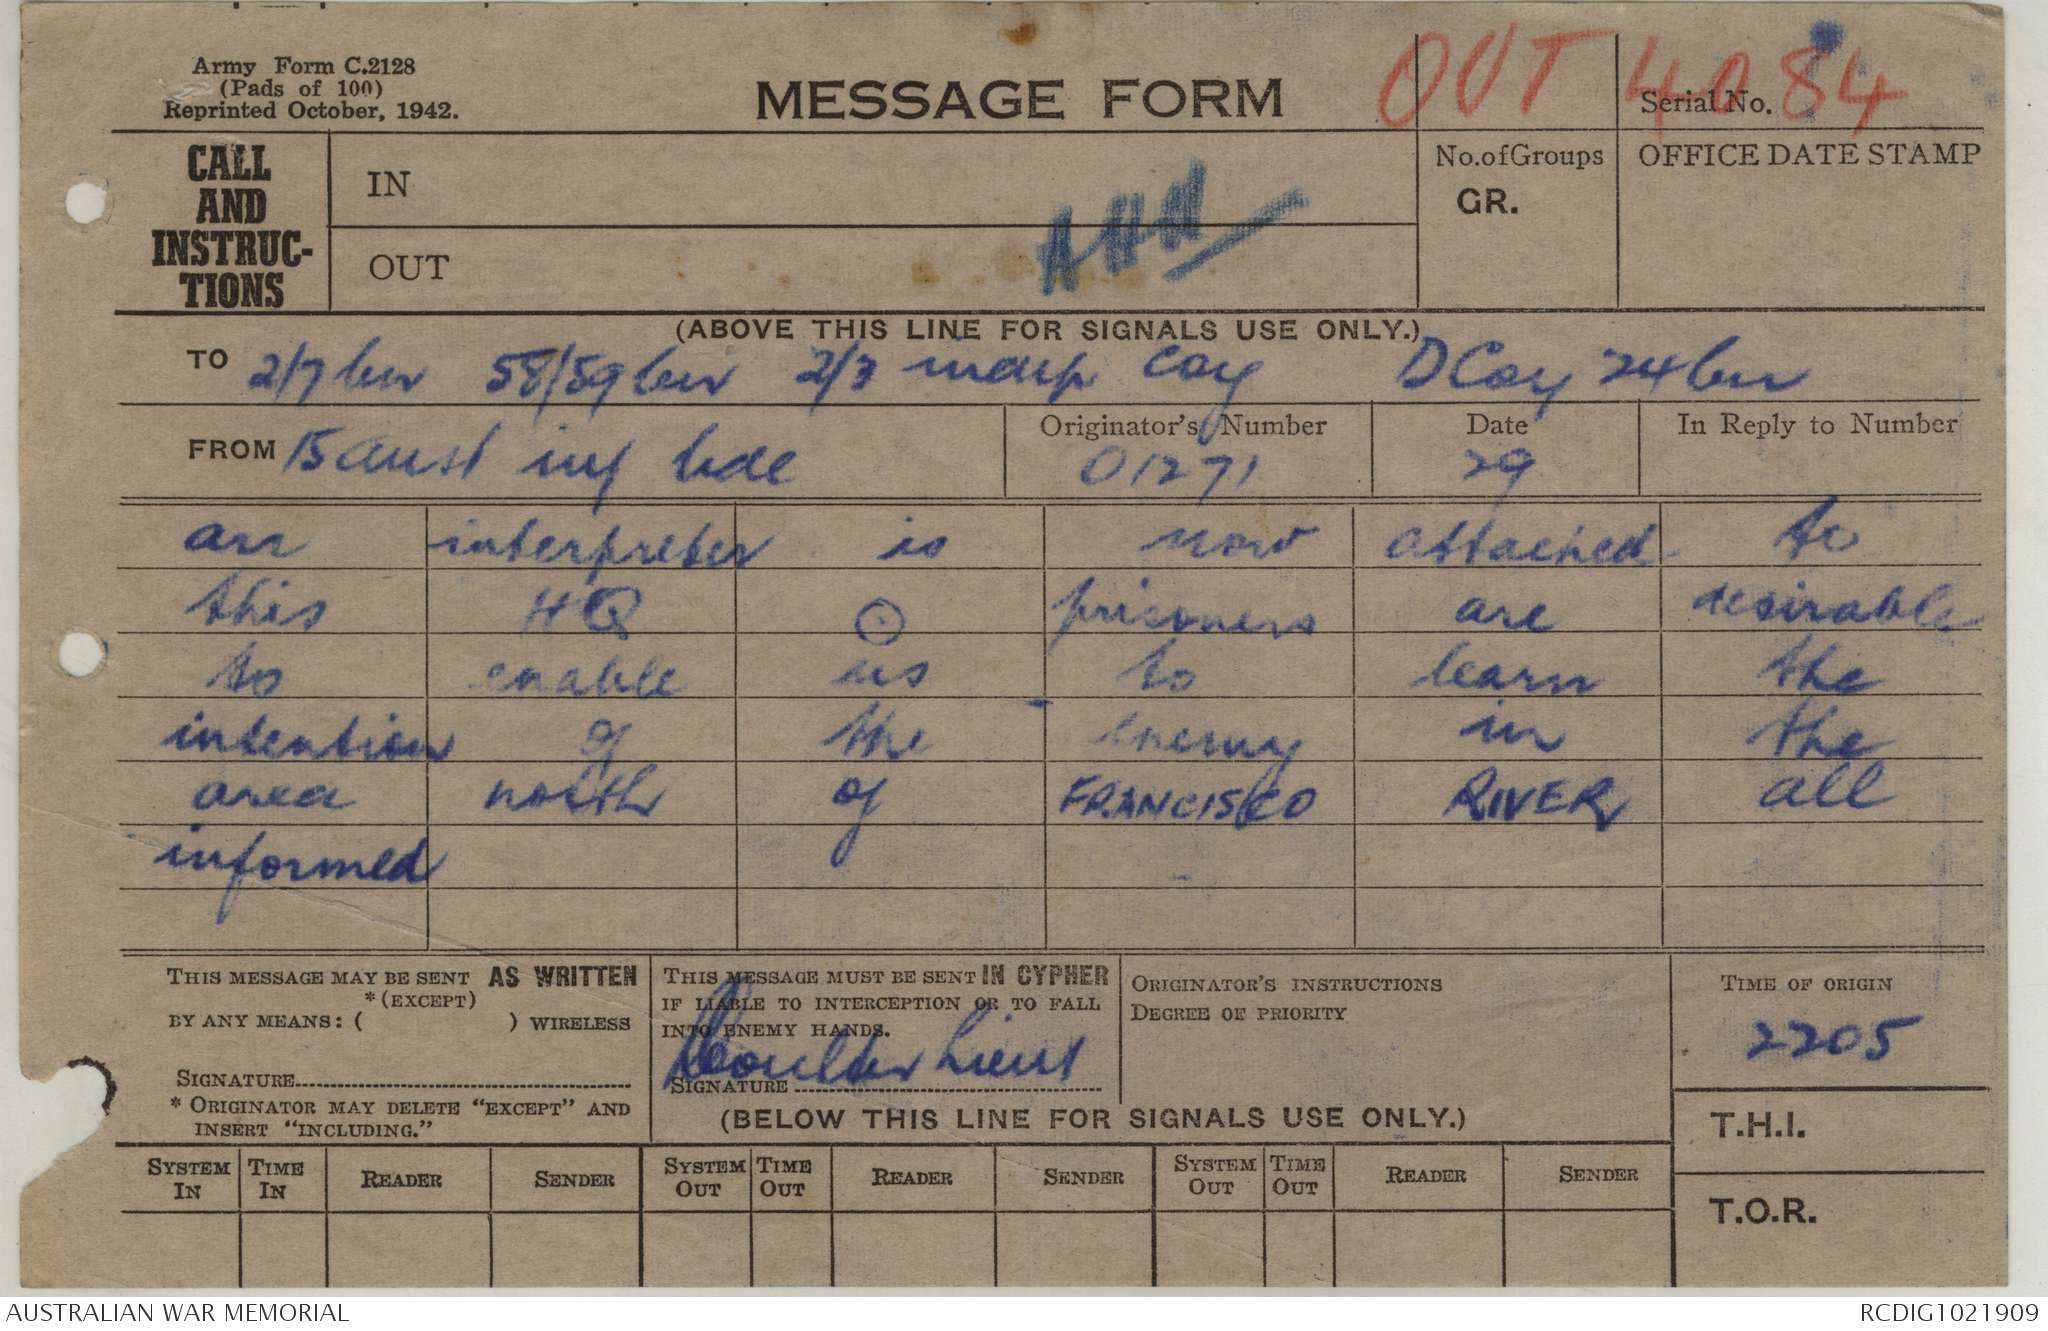 Army Form C.2128
(Pads of 100)
Reprinted October, 1942.
MESSAGE FORM
OUT 4084
Serial No.
CALL AND INSTRUC-TIONS
IN
OUT
No. of Groups
GR.
OFFICE DATE STAMP
(ABOVE THIS LINE FOR SIGNALS USE ONLY.)
TO 2/7 bn 58/59 bn 2/3 indep coy D Coy 24 bn
FROM 15 aust inf bde
Originator's Number
01271
Date
29
In Reply to Number
an interpreter is now attached to
this HQ ⊙ prisoners are desirable
to enable us to learn the
intention of the enemy in the
area north of FRANCISCO RIVER all
informed
THIS MESSAGE MAY BE SENT AS WRITTEN
*(EXCEPT)
BY ANY MEANS: ( ) WIRELESS
SIGNATURE
* ORIGINATOR MAY DELETE "EXCEPT" AND
INSERT "INCLUDING."
THIS MESSAGE MUST BE SENT IN CYPHER
IF LIABLE TO INTERCEPTION OR TO FALL
INTO ENEMY HANDS.
Coulter Lieut
SIGNATURE
ORIGINATOR'S INSTRUCTIONS
DEGREE OF PRIORITY
TIME OF ORIGIN
2205
(BELOW THIS LINE FOR SIGNALS USE ONLY.)
T.H.I.
T.O.R.
SYSTEM IN TIME IN READER SENDER SYSTEM OUT TIME OUT READER SENDER SYSTEM OUT TIME OUT READER SENDER
AUSTRALIAN WAR MEMORIAL
RCDIG1021909